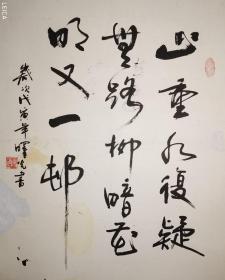 山重水復疑
無路柳暗花
明又一邨
歲次戊寅年曙光書
LEICA